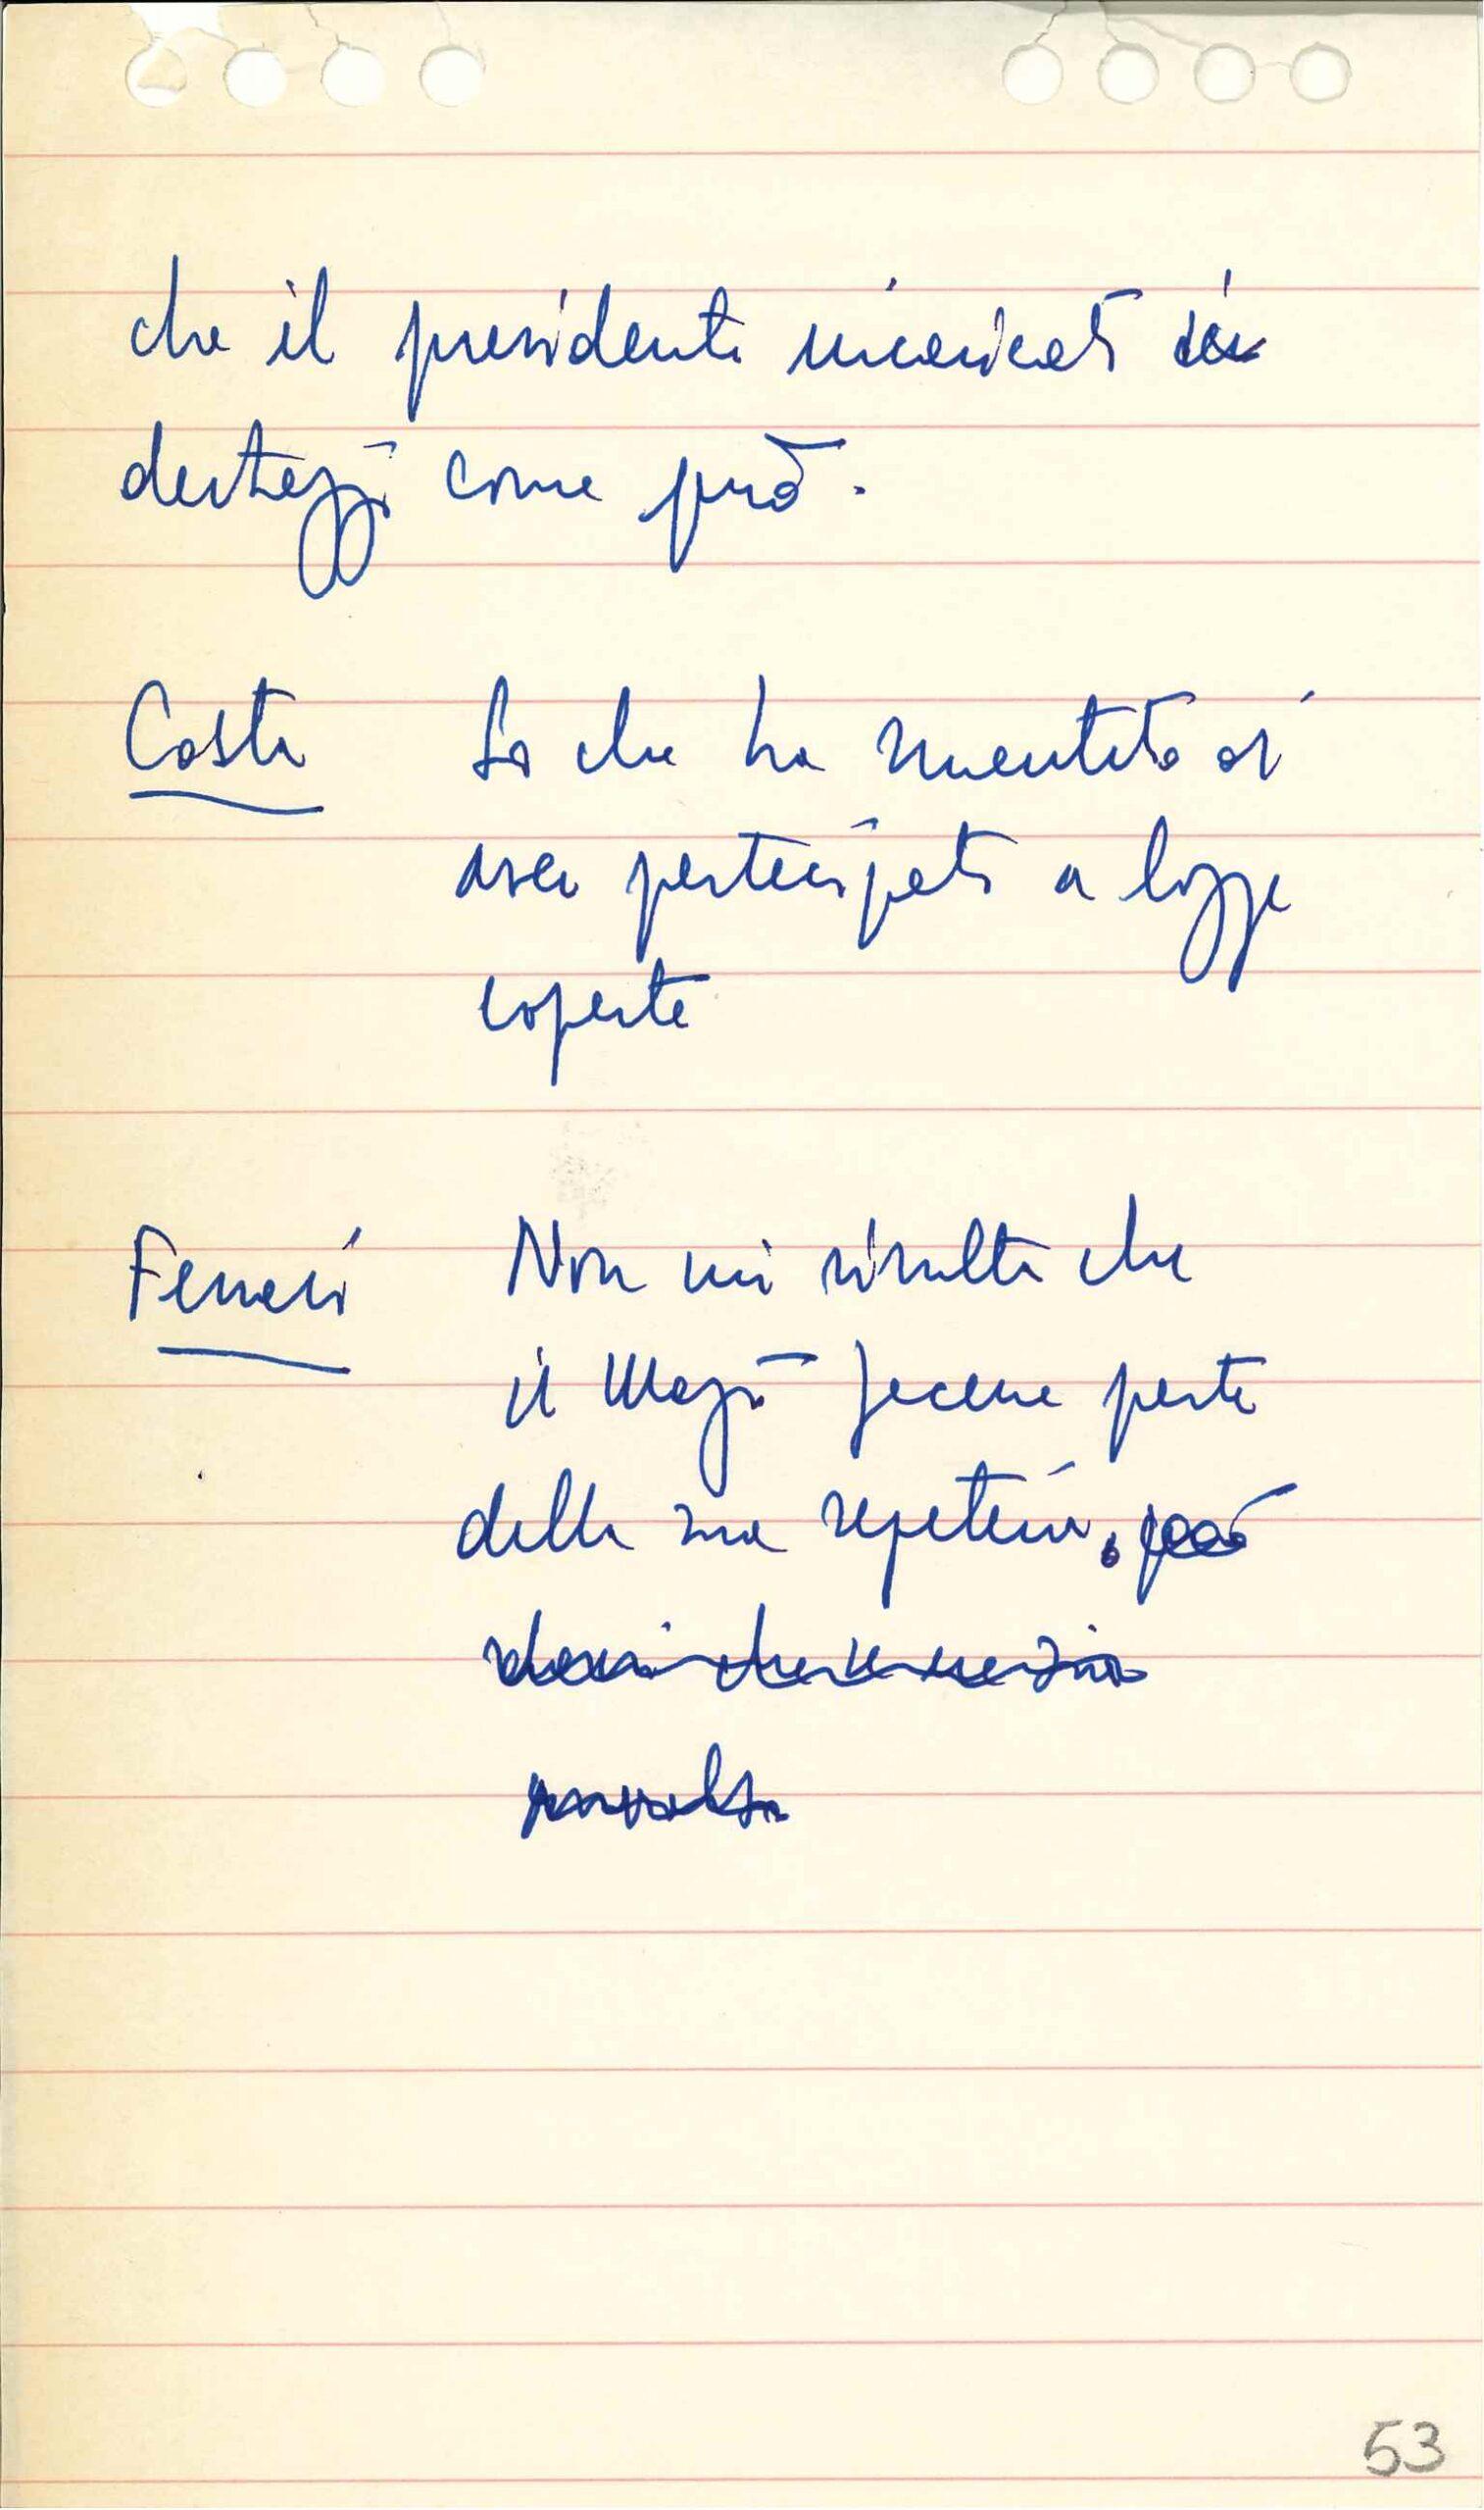 che il presidente incaricato si
destreggi come può.
Costa So che ha smentito di
aver partecipato a logge
coperte
Ferrari Non mi risulta che
il Mazzi facesse parte
della sua segreteria,
53